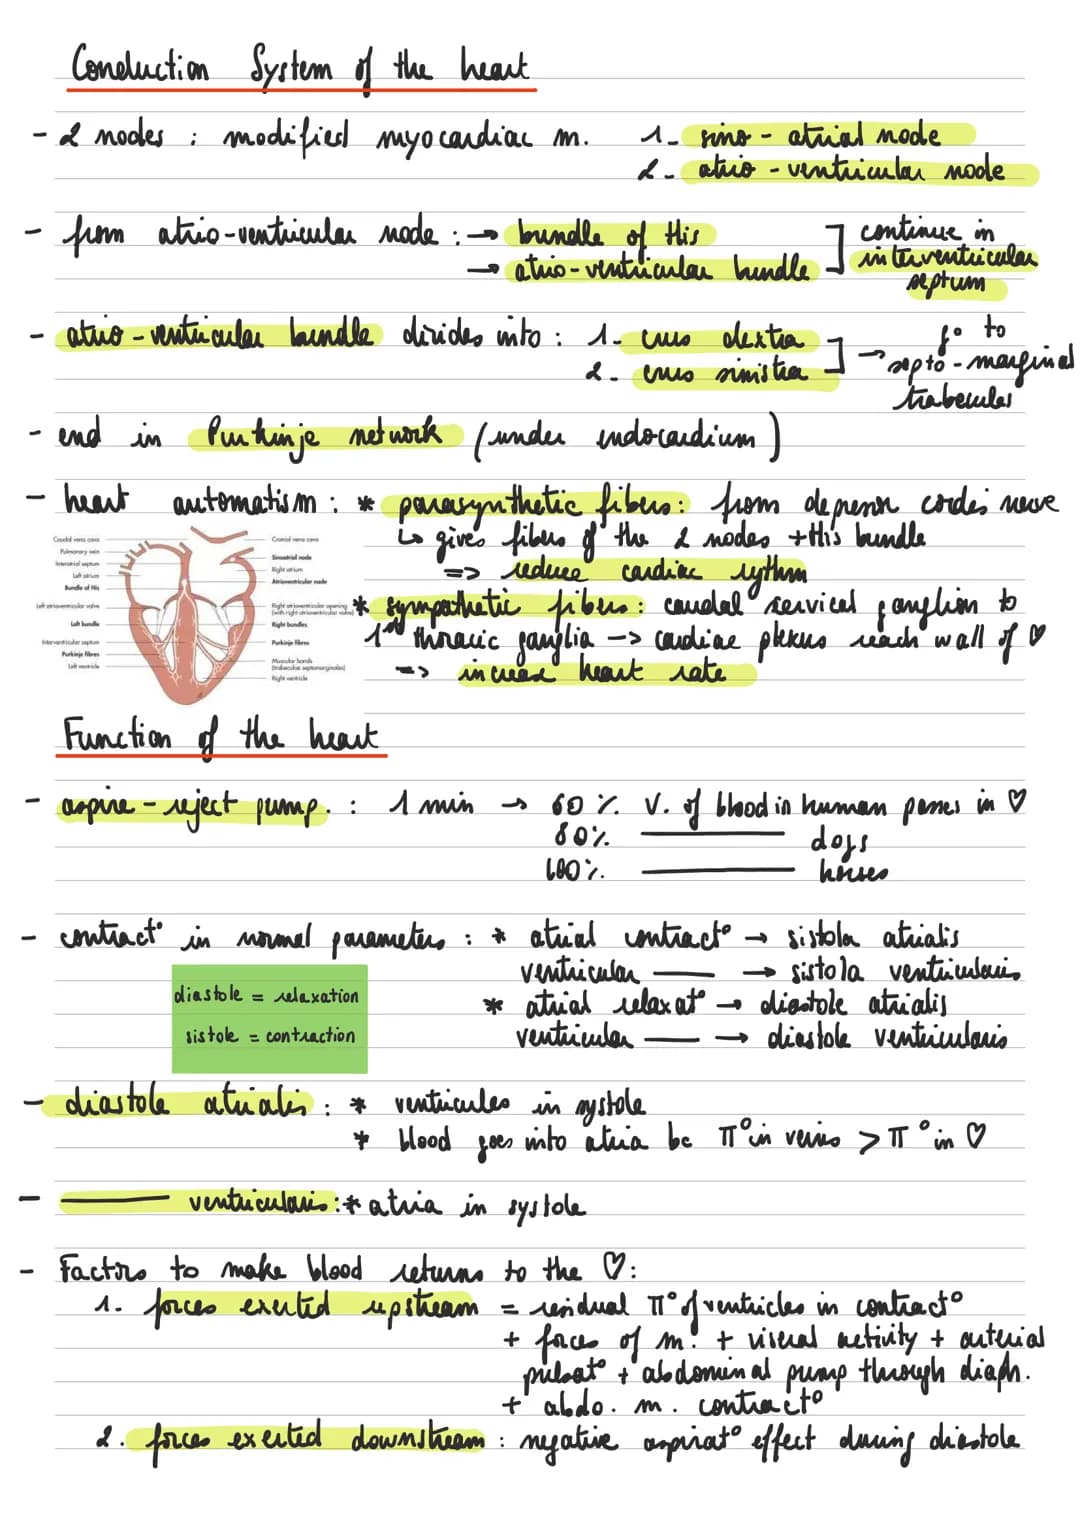 Conduction System of the heart
- 2 nodes : modified myocardiac m. 1- sino - atrial node
2- atrio - ventricular node
- from atrio-ventricular node : → bundle of His ] continue in
→ atrio-ventricular bundle interventricular
septum
- atrio - ventricular bundle divides into : 1- crus dextra ] → f° to
2- crus sinistra septo - marginal
trabecules
- end in Purkinje network (under endocardium)
- heart automatism : * parasynthetic fibers : from depenor cordei nerve
↳ gives fibers of the 2 nodes + His bundle
=> reduce cardiac rythm
* sympathetic fibers : caudal cervical ganglion to
1st thoracic ganglia -> cardiac plexus reach wall of ♡
=> increase heart rate
Caudal vena cava
Pulmonary vein
Interatrial septum
Left atrium
Bundle of His
Left atrioventricular valve
Left bundle
Interventricular septum
Purkinje fibres
Left ventricle
Cranial vena cava
Sinoatrial node
Right atrium
Atrioventricular node
Right atrioventricular opening
(with right atrioventricular valve)
Right bundles
Purkinje fibres
Muscular bands
(trabeculae septomarginales)
Right ventricle
Function of the heart
- aspire - reject pump. : 1 min → 60 % V. of blood in human passes in ♡
80% ——— dogs
100%. ——— horses
- contract° in normal parameters : * atrial contract° → sistola atrialis
ventricular —— → sistola ventricularis
* atrial relaxat° → diastole atrialis
ventricular —— → diastole ventricularis
diastole = relaxation
sistole = contraction
- diastole atrialis : * ventricules in systole
* blood goes into atria bc π° in veins > π° in ♡
- ——— ventricularis : * atria in systole
- Factors to make blood returns to the ♡ :
1. forces exerted upstream = residual π° of ventricles in contract°
+ forces of m. + viseral activity + arterial
pulsat° + abdominal pump through diaph.
+ abdo. m. contract°
2. forces exerted downstream : negative aspirat° effect during diastole